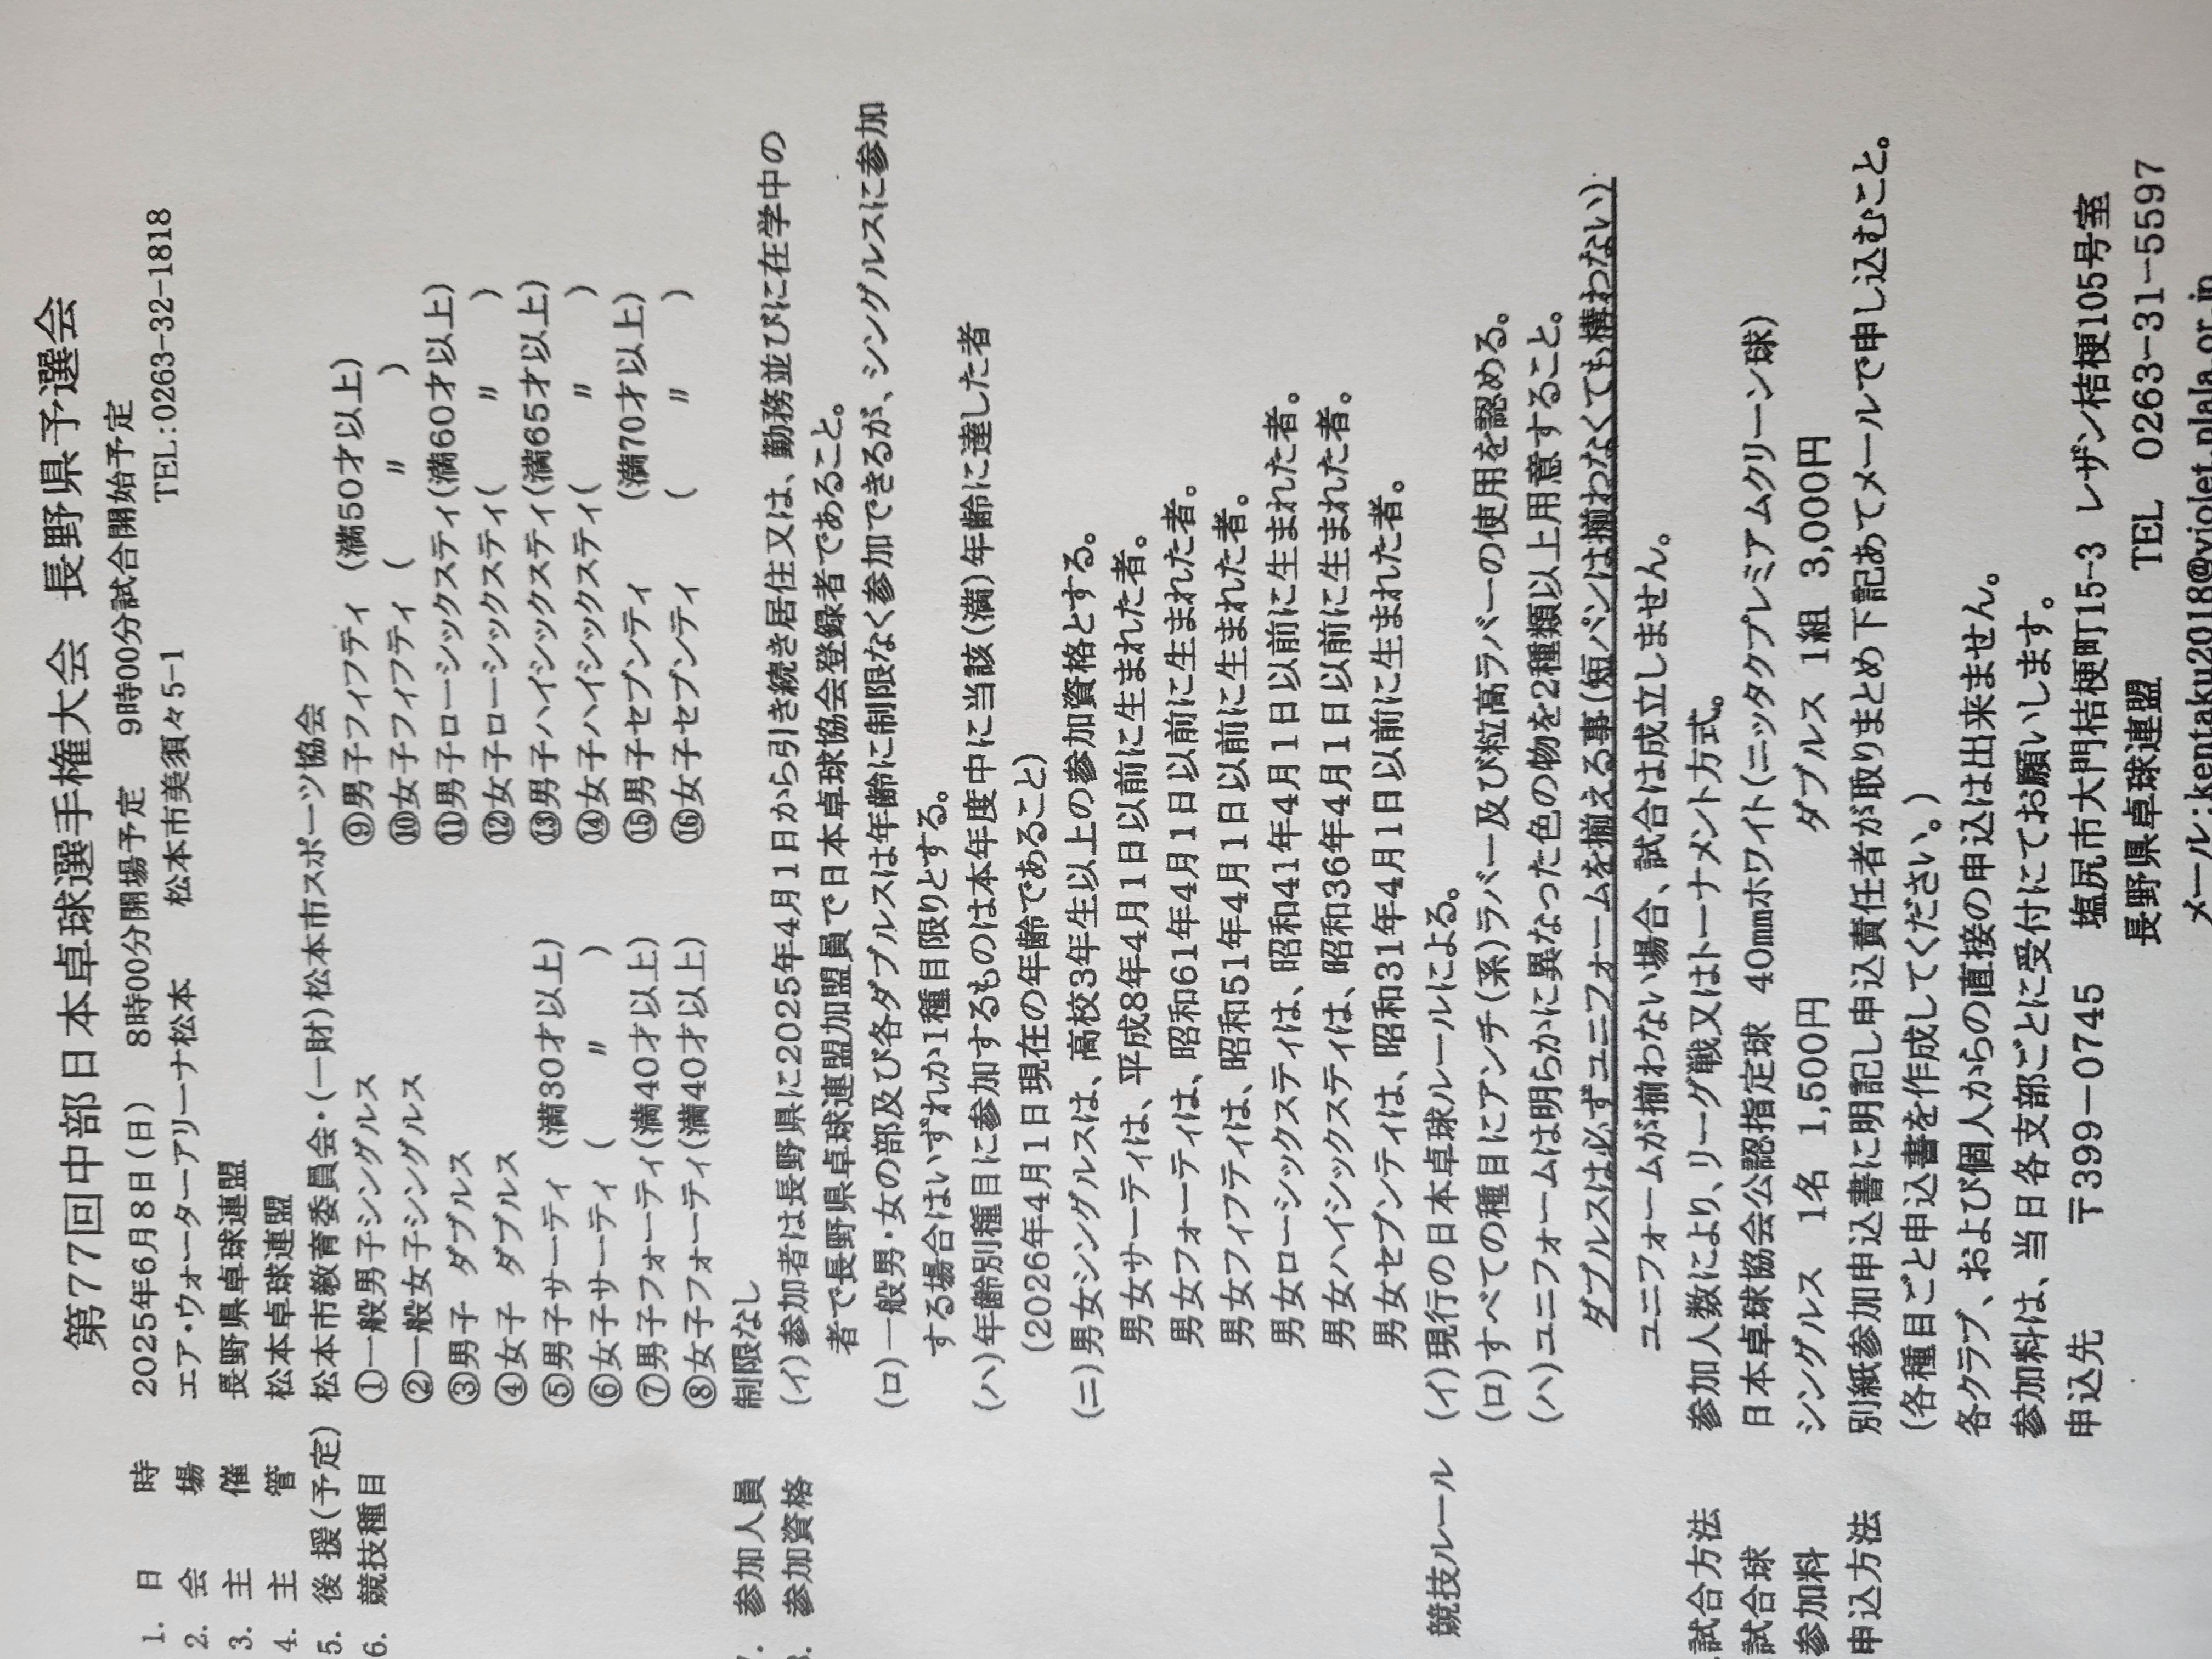 第77回中部日本卓球選手権大会 長野県予選会
1. 日 時 2025年6月8日(日) 8時00分開場予定 9時00分試合開始予定
2. 会 場 エア・ウォーターアリーナ松本 松本市美須々5-1 TEL:0263-32-1818
3. 主 催 長野県卓球連盟
4. 主 管 松本卓球連盟
5. 後 援(予定) 松本市教育委員会・(一財)松本市スポーツ協会
6. 競技種目 ①一般男子シングルス ⑨男子フィフティ (満50才以上)
②一般女子シングルス ⑩女子フィフティ ( 〃 )
③男子 ダブルス ⑪男子ローシックスティ(満60才以上)
④女子 ダブルス ⑫女子ローシックスティ( 〃 )
⑤男子サーティ (満30才以上) ⑬男子ハイシックスティ(満65才以上)
⑥女子サーティ ( 〃 ) ⑭女子ハイシックスティ( 〃 )
⑦男子フォーティ(満40才以上) ⑮男子セブンティ (満70才以上)
⑧女子フォーティ(満40才以上) ⑯女子セブンティ ( 〃 )
参加人員 制限なし
参加資格 (イ)参加者は長野県に2025年4月1日から引き続き居住又は、勤務並びに在学中の
者で長野県卓球連盟加盟員で日本卓球協会登録者であること。
(ロ)一般男・女の部及び各ダブルスは年齢に制限なく参加できるが、シングルスに参加
する場合はいずれか1種目限りとする。
(ハ)年齢別種目に参加するものは本年度中に当該(満)年齢に達した者
(2026年4月1日現在の年齢であること)
(ニ)男女シングルスは、高校3年生以上の参加資格とする。
男女サーティは、平成8年4月1日以前に生まれた者。
男女フォーティは、昭和61年4月1日以前に生まれた者。
男女フィフティは、昭和51年4月1日以前に生まれた者。
男女ローシックスティは、昭和41年4月1日以前に生まれた者。
男女ハイシックスティは、昭和36年4月1日以前に生まれた者。
男女セブンティは、昭和31年4月1日以前に生まれた者。
競技ルール (イ)現行の日本卓球ルールによる。
(ロ)すべての種目にアンチ(系)ラバー及び粒高ラバーの使用を認める。
(ハ)ユニフォームは明らかに異なった色の物を2種類以上用意すること。
ダブルスは必ずユニフォームを揃える事(短パンは揃わなくても構わない)
ユニフォームが揃わない場合、試合は成立しません。
試合方法 参加人数により、リーグ戦又はトーナメント方式。
試合球 日本卓球協会公認指定球 40㎜ホワイト(ニッタクプレミアムクリーン球)
参加料 シングルス 1名 1,500円 ダブルス 1組 3,000円
申込方法 別紙参加申込書に明記し申込責任者が取りまとめ下記あてメールで申し込むこと。
(各種目ごと申込書を作成してください。)
各クラブ、および個人からの直接の申込は出来ません。
参加料は、当日各支部ごとに受付にてお願いします。
申込先 〒399-0745 塩尻市大門桔梗町15-3 レザン桔梗105号室
長野県卓球連盟 TEL 0263-31-5597
メール:kentaku2018@violet.plala.or.jp